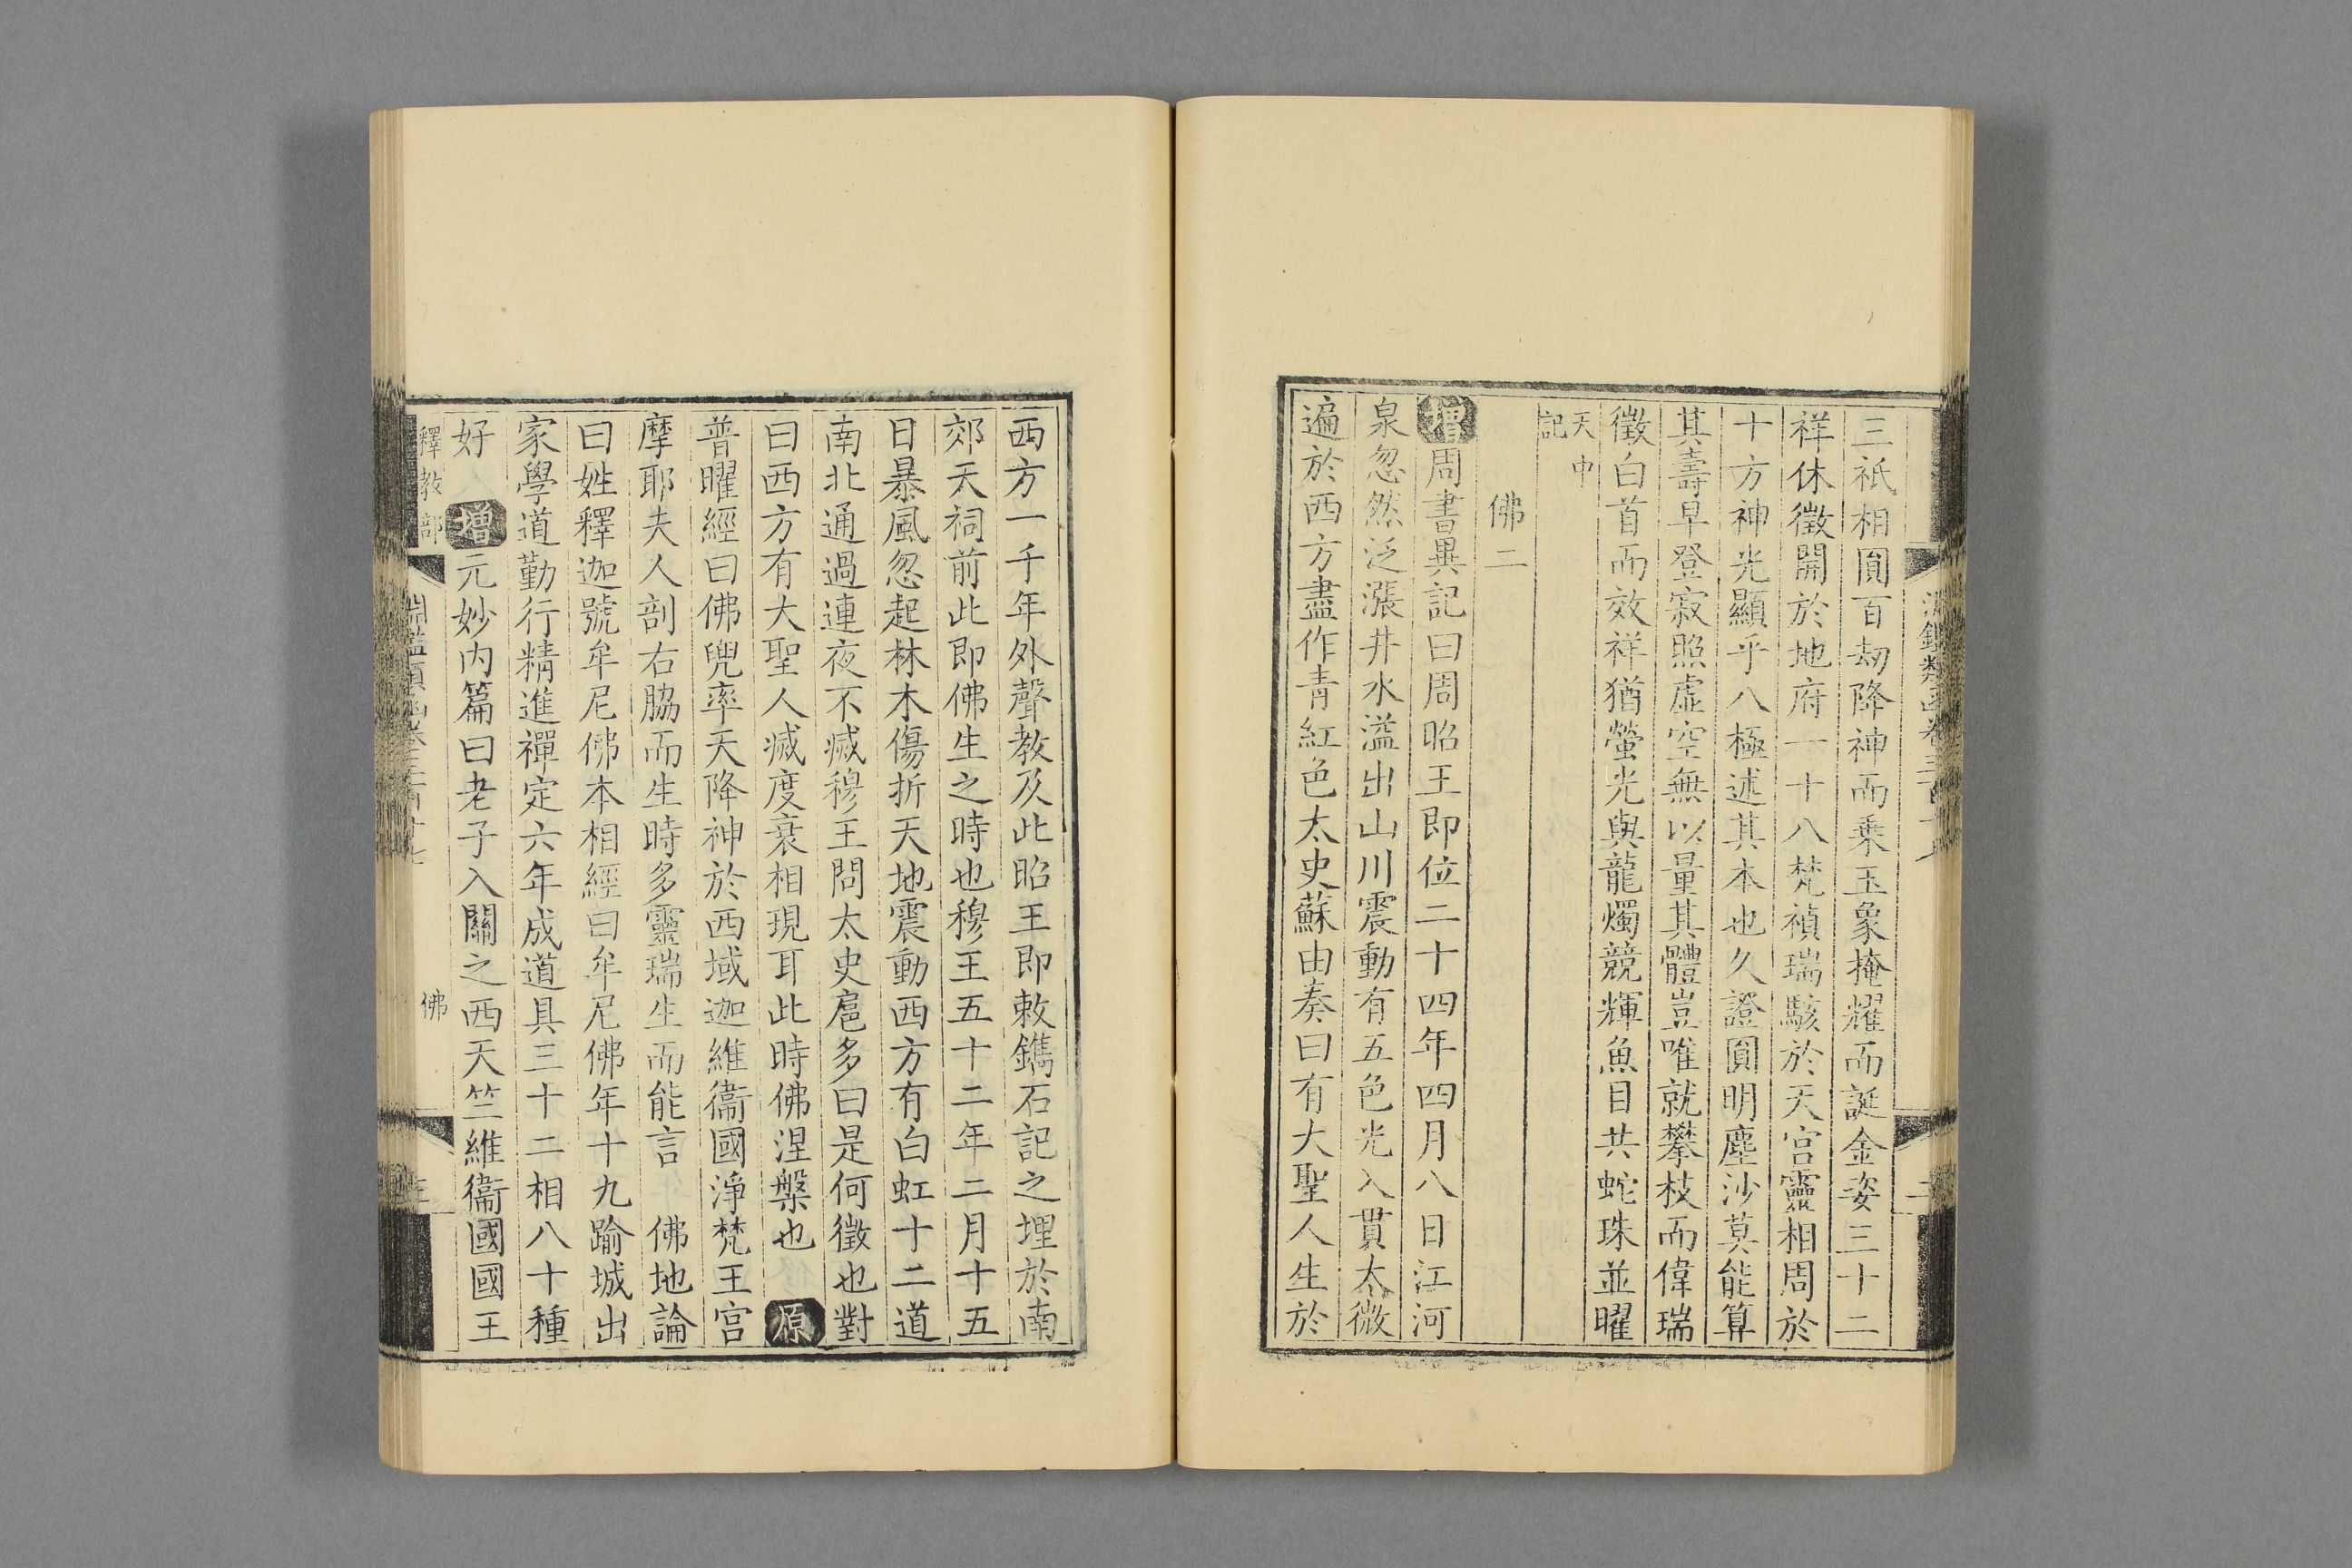 三祇相圓百劫降神而乗玉象掩耀而誕金姿三十二
祥休徵開於地府一十八梵禎瑞駭於天宫靈相周於
十方神光顯乎八極述其本也久證圓明塵沙莫能算
其壽早登寂照虛空無以量其體豈唯就攀枝而偉瑞
徵白首而效祥猶螢光與龍燭競輝魚目共蛇珠並曜
天中
記
佛二
增周書異記曰周昭王即位二十四年四月八日江河
泉忽然泛漲井水溢出山川震動有五色光入貫太微
遍於西方盡作青紅色太史蘇由奏曰有大聖人生於
西方一千年外聲教及此昭王即敕鐫石記之埋於南
郊天祠前此即佛生之時也穆王五十二年二月十五
日暴風忽起林木傷折天地震動西方有白虹十二道
南北通過連夜不滅穆王問太史扈多曰是何徵也對
曰西方有大聖人滅度衰相現耳此時佛涅槃也原
普曜經曰佛兜率天降神於西域迦維衞國淨梵王宫
摩耶夫人剖右脇而生時多靈瑞生而能言 佛地論
曰姓釋迦號牟尼佛本相經曰牟尼佛年十九踰城出
家學道勤行精進禪定六年成道具三十二相八十種
好 增元妙内篇曰老子入關之西天竺維衞國國王
釋教部
淵鑑類函卷三百十七
佛